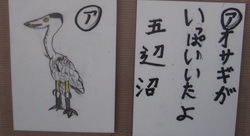 ア
アオサギが
いっぱいいたよ
五辺沼